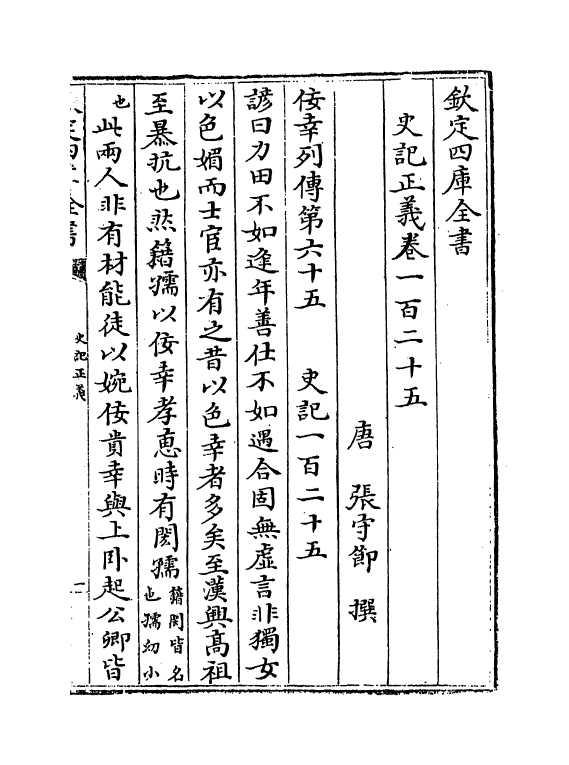 欽定四庫全書
史記正義卷一百二十五
唐 張守節 撰
佞幸列傳第六十五 史記一百二十五
諺曰力田不如逢年善仕不如遇合固無虛言非獨女
以色媚而士宦亦有之昔以色幸者多矣至漢興髙祖
至暴抗也然籍孺以佞幸孝恵時有閎孺籍閎皆名也孺㓜小
也此兩人非有材能徒以婉佞貴幸與上卧起公卿皆
史記正義